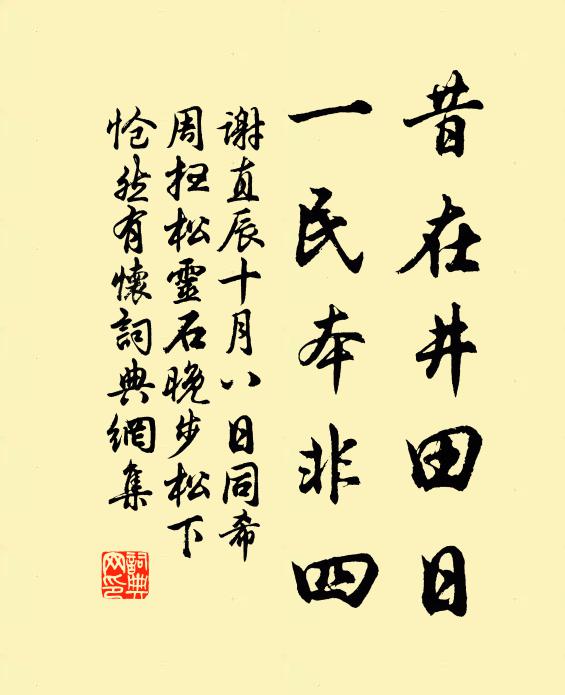 昔在井田日
一民本非四
謝直辰十月八日同希
周扫松靈石晚步松下
怆然有懷詞典網集
詞典网印